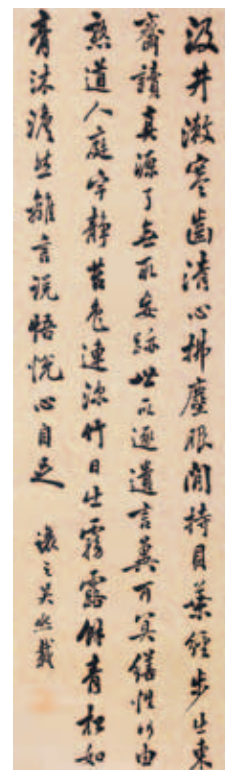 汲井漱寒齒清心拂塵服閒持貝葉經步出東
齋讀真源了無取妄跡世所逐遺言冀可冥繕性何由
熟道人庭宇靜苔色連深竹日出霧露餘青松如
膏沐澹然離言説悟悅心自足
讓之吳熙載